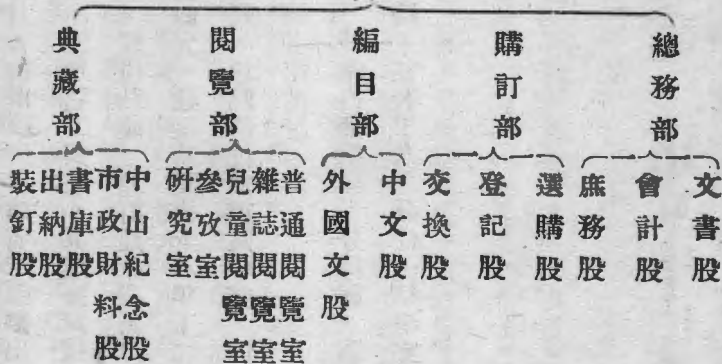 總務部
文書股
會計股
庶務股
購訂部
選購股
登記股
交換股
編目部
中文股
外國文股
閱覽部
普通閱覽室
雜誌閱覽室
兒童閱覽室
參攷室
研究室
典藏部
中山紀念股
市政財料股
書庫股
出納股
裝釘股